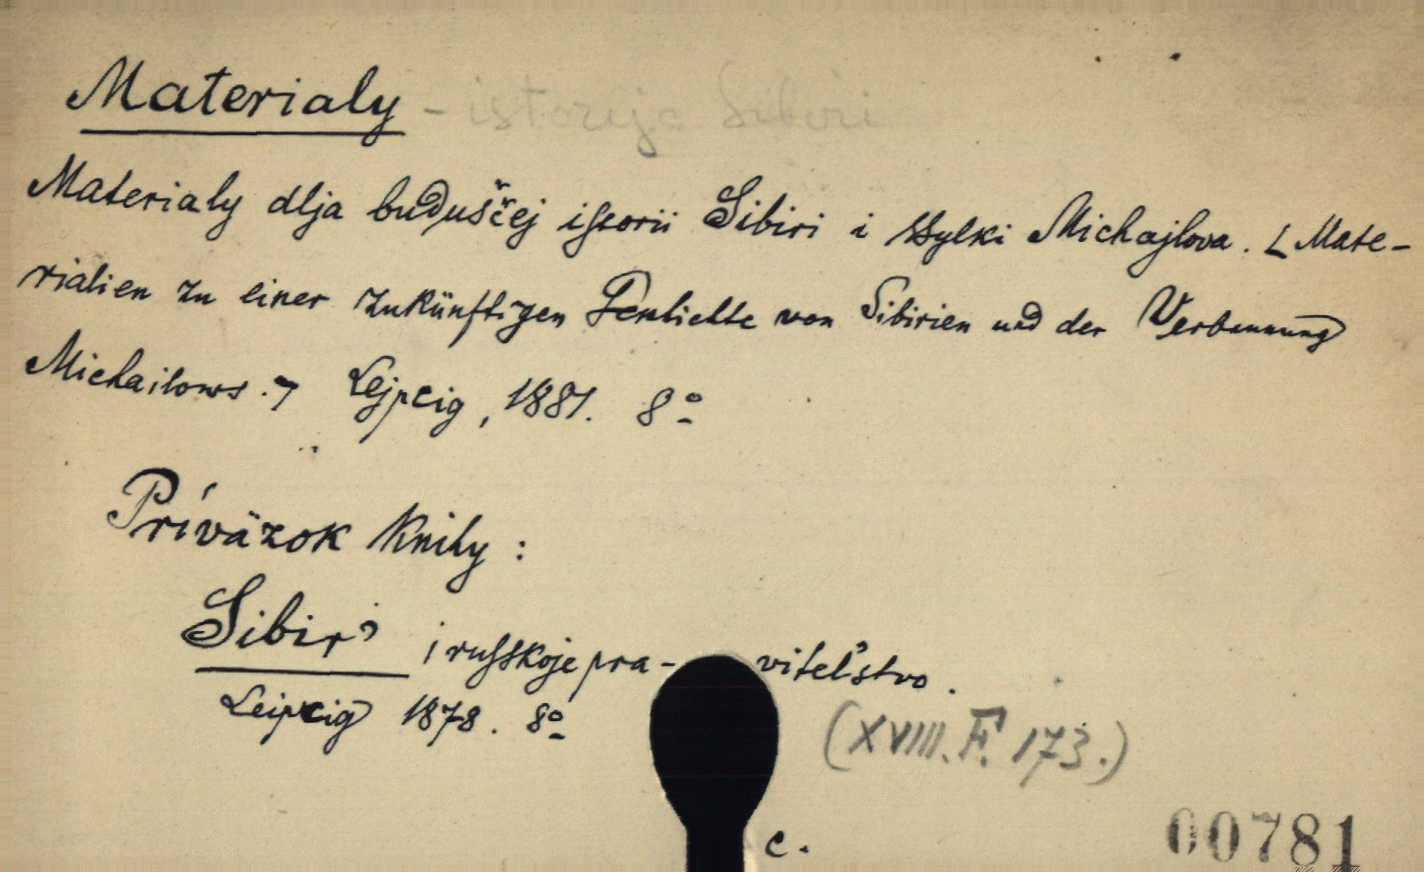 Materialy - istorija Sibiri
Materialy dlja buduščej istorii Sibiri i ssylki Michajlova. [Mate-
rialien zu einer zukünftigen Geschichte von Sibirien und der Verbannung
Michailows.] Lejpcig, 1881. 8º
Príväzok knihy:
Sibir' i russkoje pra-vitel'stvo.
Leipcig 1878. 8º
(XVIII. F. 173.)
c.
00781